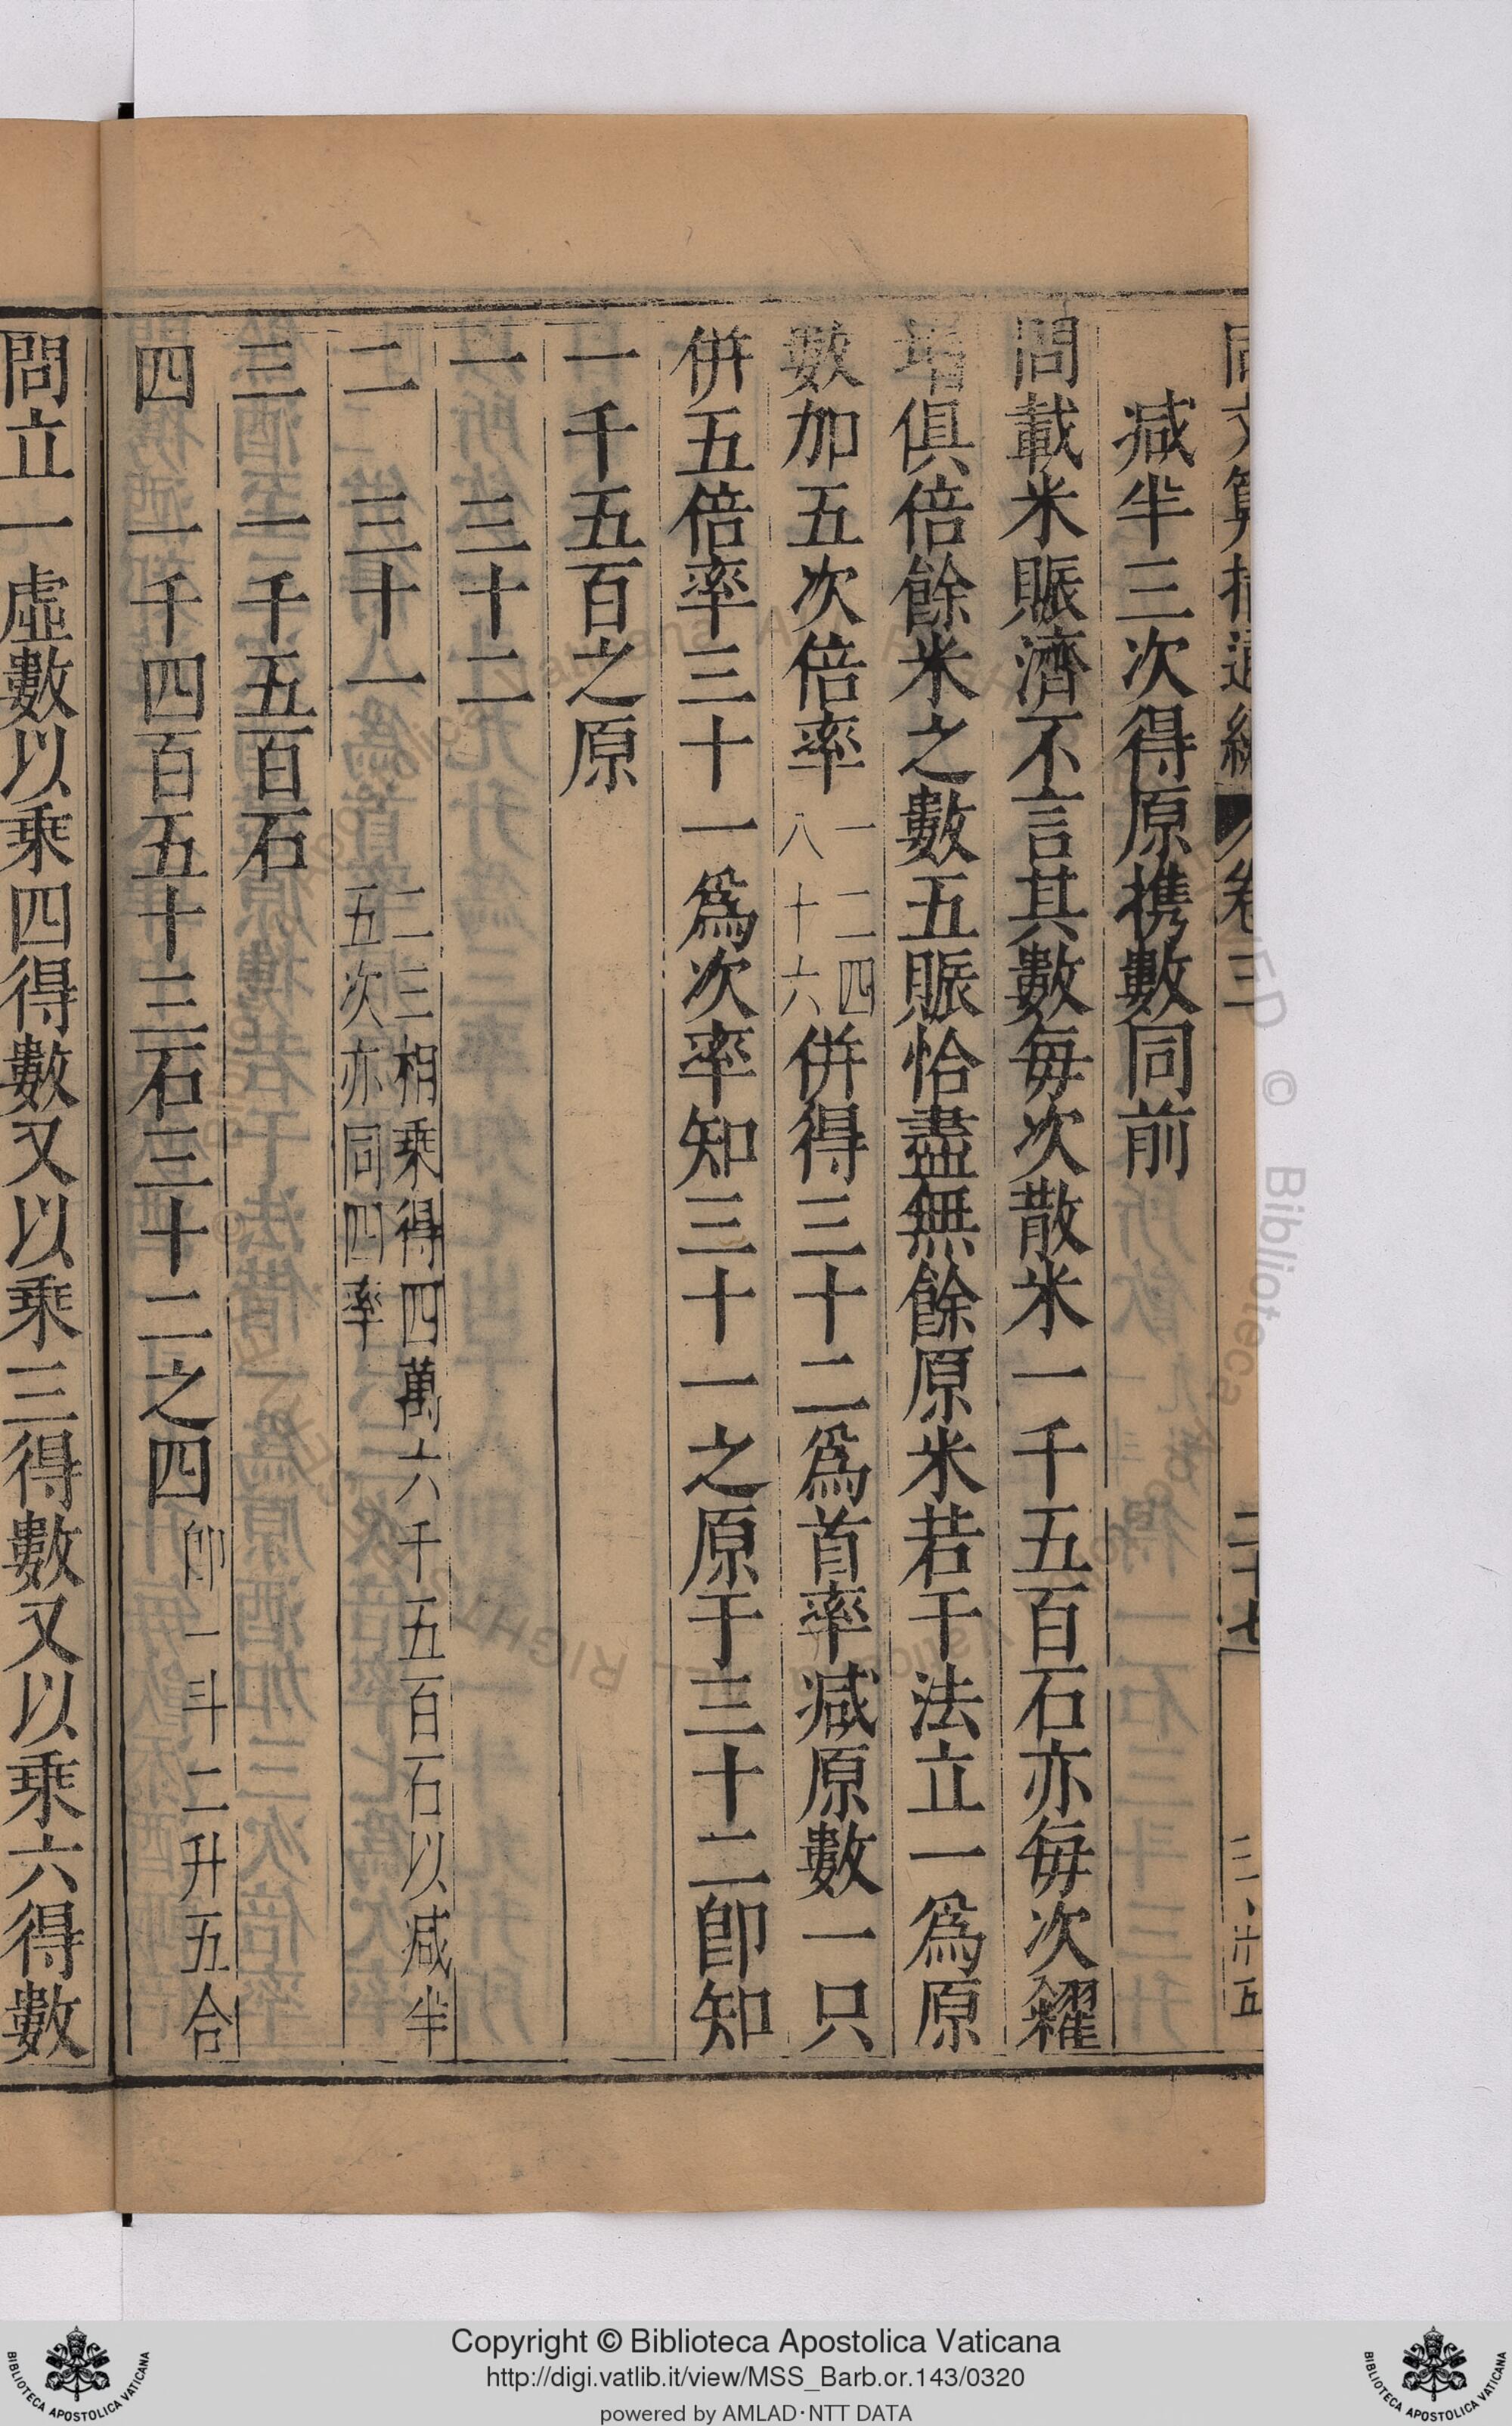 減半三次得原携數同前
問載米賑濟不言其數每次散米一千五百石亦每次糴
增俱倍餘米之數五賑恰盡無餘原米若干法立一爲原
數加五次倍率一二四八十六併得三十二爲首率減原數一只
併五倍率三十一爲次率知三十一之原于三十二卽知
一千五百之原
一 三十二
二 三十一 二三相乘得四萬六千五百石以減半五次亦同四率
三 一千五百石
四 一千四百五十三石三十二之四 卽一斗二升五合
問立一虛數以乘四得數又以乘三得數又以乘六得數
Copyright © Biblioteca Apostolica Vaticana
http://digi.vatlib.it/view/MSS_Barb.or.143/0320
powered by AMLAD·NTT DATA
BIBLIOTECA APOSTOLICA VATICANA
BIBLIOTECA APOSTOLICA VATICANA